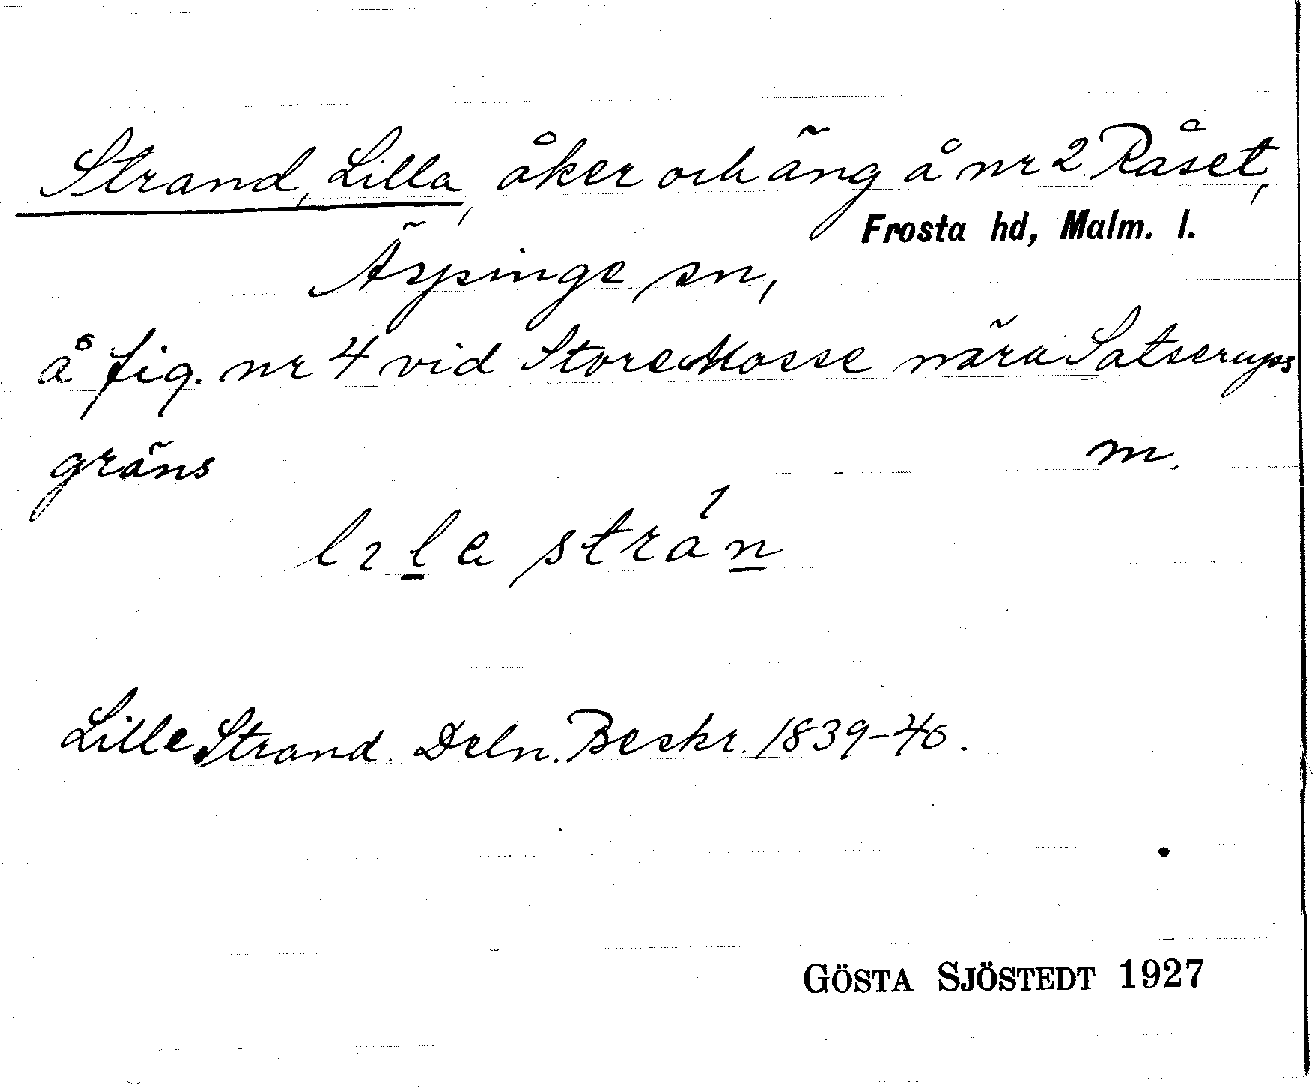 Strand, Lilla, åker och äng å nr 2 Råset,
Frosta hd, Malm. l.
Äspinge sn,
å fig. nr 4 vid Store Mosse nära Satserups
gräns m.
lıl̲a strán̲
Lille Strand. Deln. Beskr. 1839-40.
GÖSTA SJÖSTEDT 1927